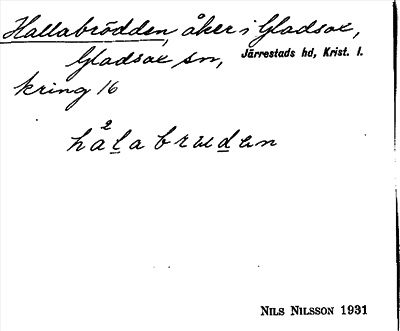 Hallabrödden, åker i Gladsax,
Gladsax sn, Järrestads hd, Krist. l.
kring 16
NILS NILSSON 1931